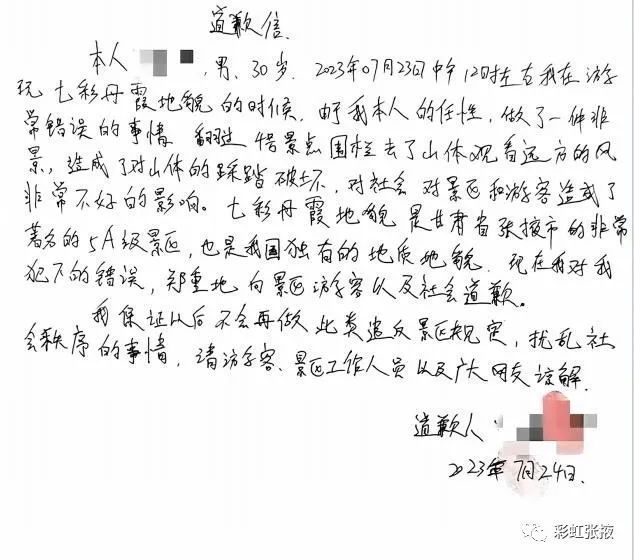 道歉信
本人，男，30岁。2023年07月23日中午12时左右我在游
玩七彩丹霞地貌的时候，由于我本人的任性，做了一件非
常错误的事情 翻过 景点围栏去了山体观看远方的风
景，造成了对山体的踩踏破坏，对社会对景区和游客造成了
非常不好的影响。七彩丹霞地貌是甘肃省张掖市的非常
著名的5A级景区，也是我国独有的地质地貌。现在我对我
犯下的错误，郑重地向景区游客以及社会道歉。
我保证以后不会再做此类违反景区规定，扰乱社
会秩序的事情，请游客、景区工作人员以及广大网友谅解。
道歉人：
2023年7月24日.
彩虹张掖